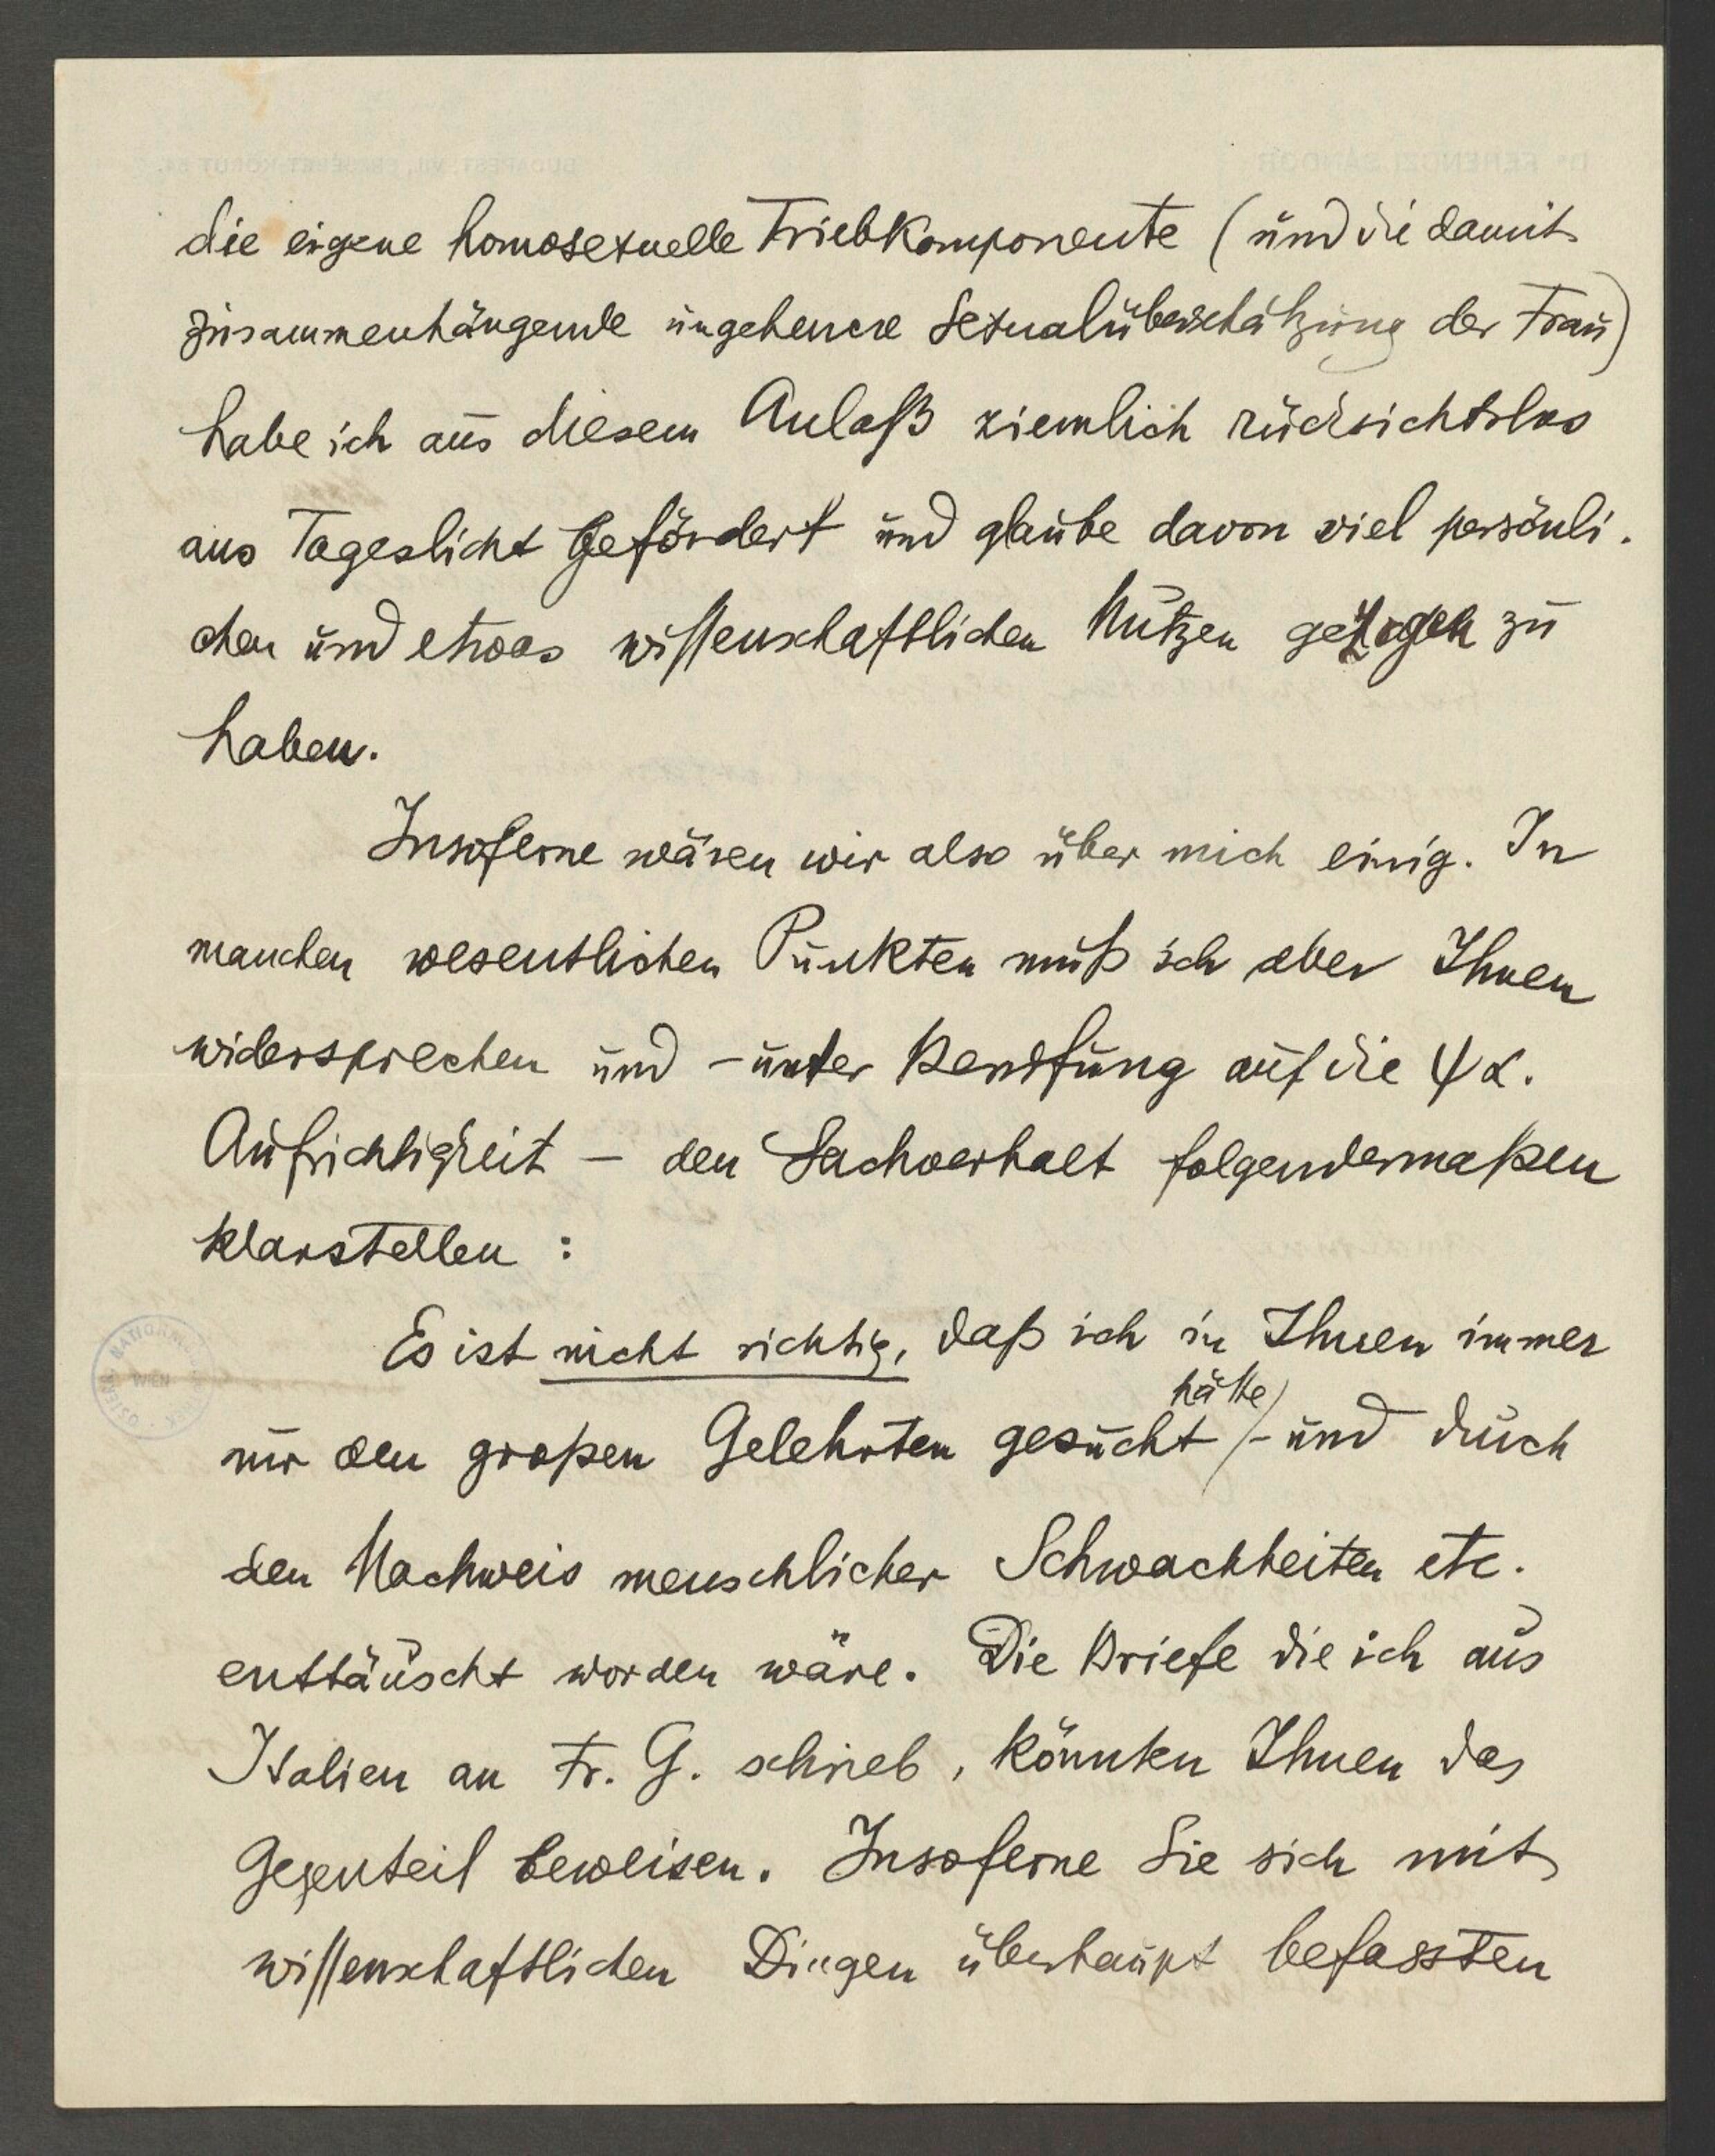 die eigene homosexuelle Triebkomponente (und die damit
zusammenhängende ungeheuere Sexualüberschätzung der Frau)
habe ich aus diesem Anlaß ziemlich rücksichtslos
ans Tageslicht gefördert und glaube davon viel persönli-
chen und etwas wissenschaftlichen Nutzen gezogen zu
haben.
Insoferne wären wir also über mich einig. In
manchen wesentlichen Punkten muß ich aber Ihnen
widersprechen und – unter Berufung auf die ψα.
Aufrichtigkeit – den Sachverhalt folgendermaßen
klarstellen :
Es ist nicht richtig, daß ich in Ihnen immer
hätte
nur den großen Gelehrten gesucht – und durch
den Nachweis menschlicher Schwachheiten etc.
enttäuscht worden wäre. Die Briefe die ich aus
Italien an Fr. G. schrieb, könnten Ihnen das
Gegenteil beweisen. Insoferne Sie sich mit
wissenschaftlichen Dingen überhaupt befassten
WIEN